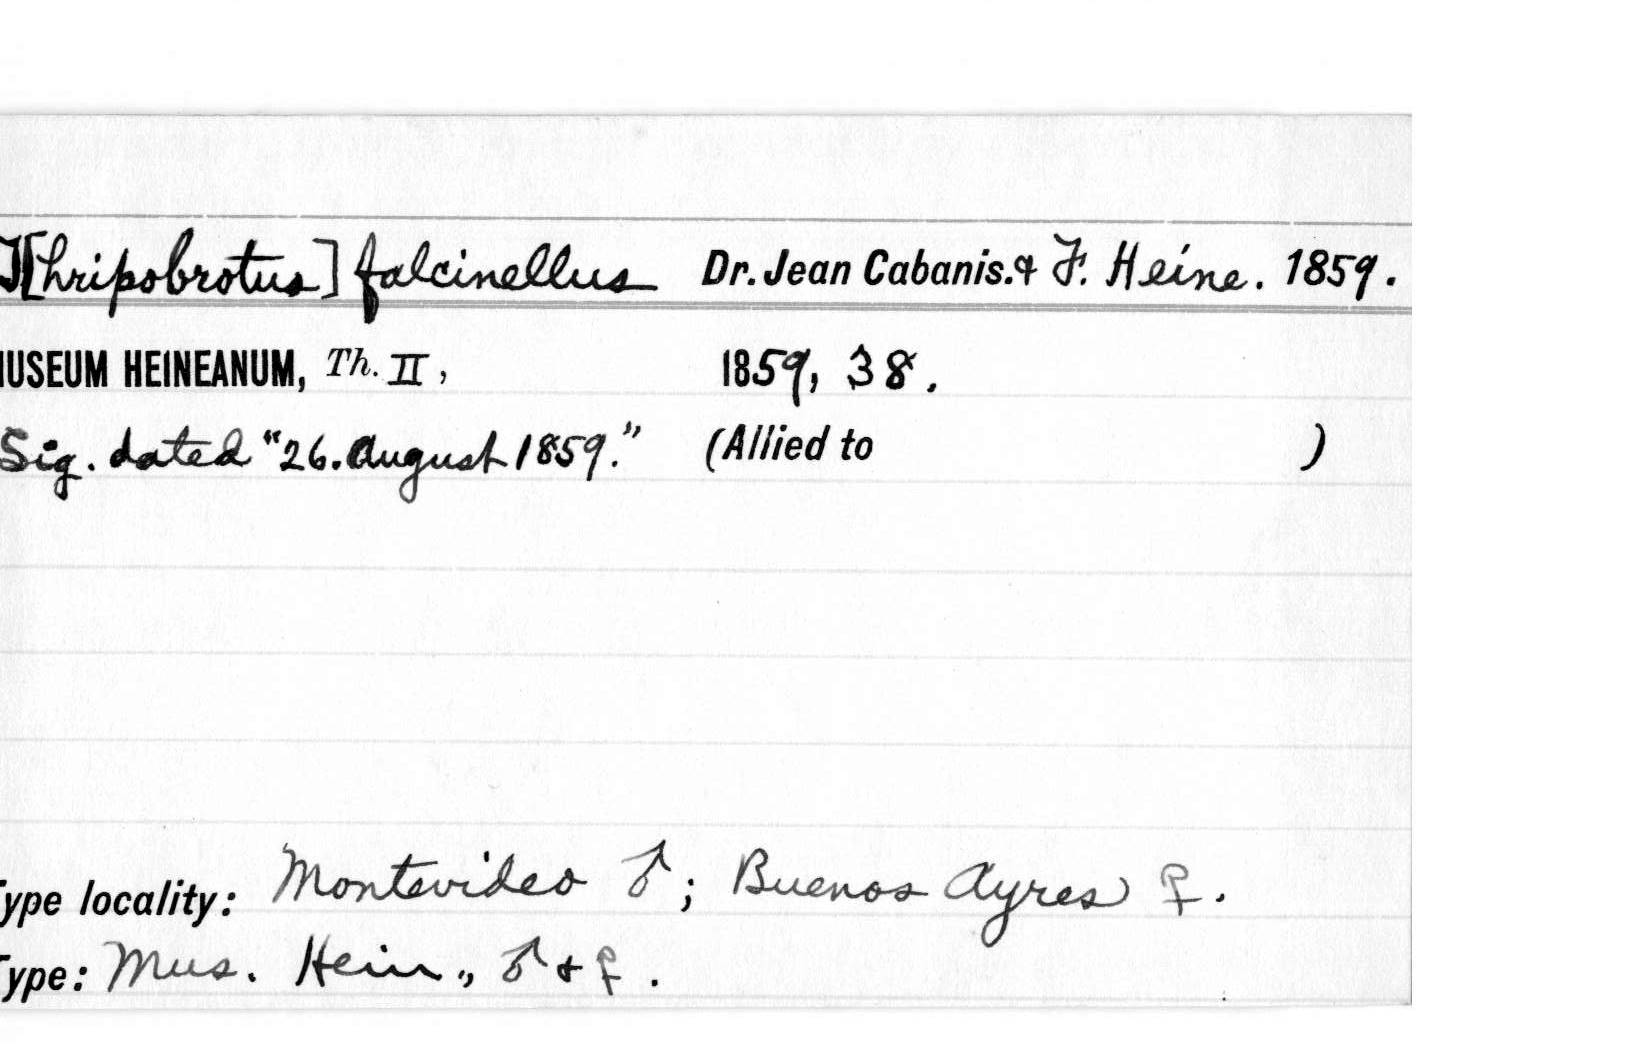 T[hripobrotus] falcinellus Dr. Jean Cabanis. & F. Heine. 1859.
MUSEUM HEINEANUM, Th. II, 1859, 38.
Sig. dated "26. August 1859." (Allied to )
Type locality: Montevideo ♂; Buenos Ayres ♀.
Type: Mus. Hein., ♂ & ♀.